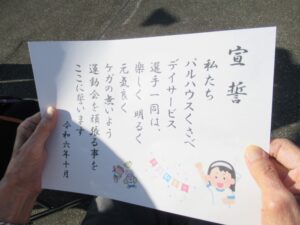 宣誓
私たち
パルハウスくさべ
デイサービス
選手一同は、
楽しく明るく
元気良く
ケガの無いよう
運動会を頑張る事を
ここに誓います
令和六年十月